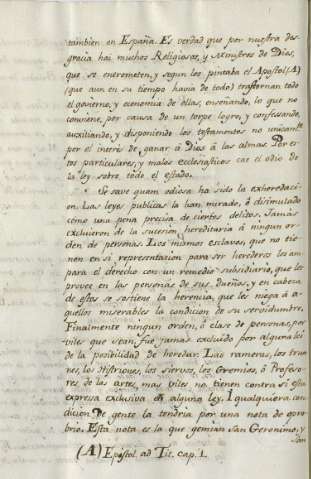 tambien en España. Es verdad que por nuestra des-
gracia hai muchos Religiosos, y Ministros de Dios,
que se entrometen, y segun los pintaba el Apostol (A)
(que aun en su tiempo havia de todo) trastornan todo
el govierno, y economia de ellas, enseñando, lo que no
conviene, por causa de un torpe logro, y confessando,
auxiliando, y disponiendo los testamentos no
por el interés de ganar á Dios á las almas. Por es-
tos particulares, y malos eclesiasticos cae el odio de
la ley sobre todo el estado.
Se save quam odiosa ha sido la exheredaci-
on. Las leyes publicas la han mirado, ó disimulado
como una pena precisa de ciertos delitos. Jamás
excluieron de la sucesion hereditaria á ningun or-
den de personas. Los mismos esclavos, que no tie-
nen en sí representacion para ser herederos los am-
para el derecho con un remedio subsidiario, que les
provee en las personas de sus dueños, y en cabeza
de estos se sostiene la herencia, que les niega á a-
quellos miserables la condicion de su servidumbre.
Finalmente ningun orden, ó clase de personas, por
viles que sean fué jamas excluido por alguna lei
de la posibilidad de heredar. Las rameras, los
los Histriones, los siervos, los Gremios, ó Profeso-
res de las artes mas viles no tienen contra sí esta
expresa exclusiva en alguna ley. I qualquiera con-
dicion de gente la tendria por una nota de opro-
brio. Esta nota es la que gemian San Geronimo, y
San
(A) Epistol. ad Tit. cap. 1.